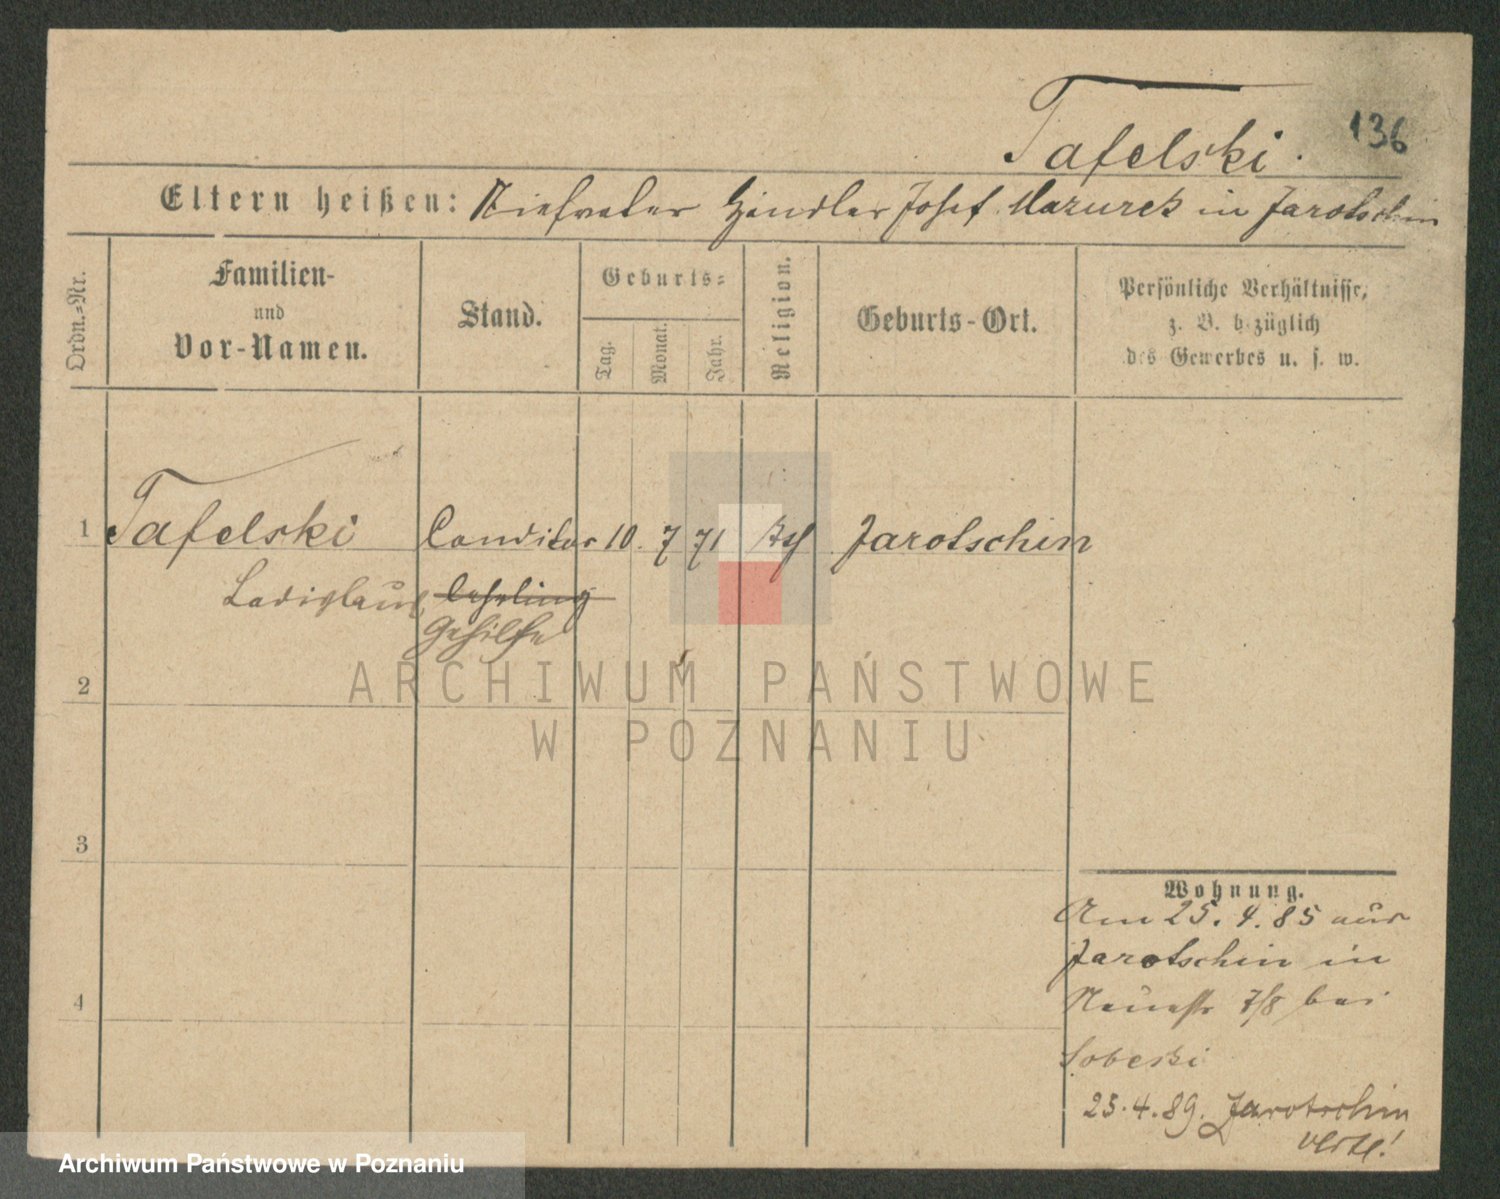 Tafelski.
136
Eltern heißen: Stiefvater Händler Josef Mazurek in Jarotschin
Ordn.-Nr.
Familien-
und
Vor-Namen.
Stand.
Geburts-
Tag.
Monat.
Jahr.
Religion.
Geburts-Ort.
Persönliche Verhältnisse,
z. B. bezüglich
des Gewerbes u. s. w.
1 Tafelski Conditor 10. 7 71 Jarotschin
Ladislaus Lehrling
Gehilfe
2
ARCHIWUM PAŃSTWOWE
W POZNANIU
3
4
Wohnung.
Am 25. 4. 85 aus
Jarotschin in
Neuestr 7/8 bei
Sobeski
25. 4. 89. Jarotschin
Archiwum Państwowe w Poznaniu